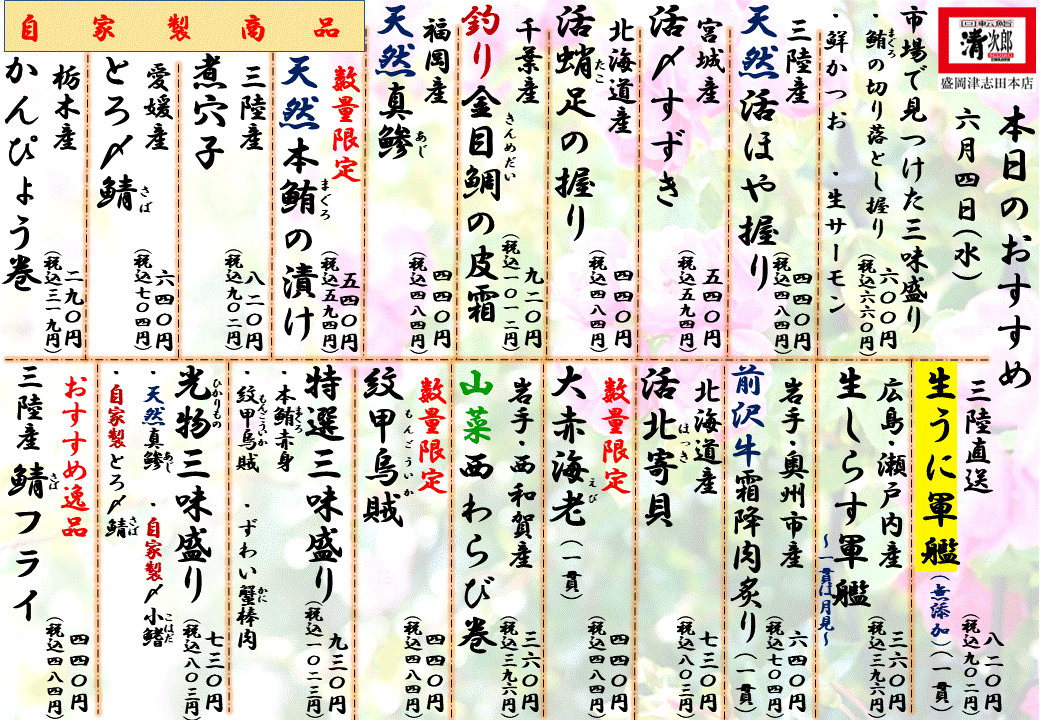 回転鮨
清次郎
盛岡津志田本店
本日のおすすめ
六月四日(水)
市場で見つけた三味盛り
・鮪の切り落とし握り
まぐろ
・鮮かつお ・生サーモン
六〇〇円
(税込六六〇円)
三陸産
天然活ほや握り
四四〇円
(税込四八四円)
宮城産
活〆すずき
五四〇円
(税込五九四円)
北海道産
活蛸足の握り
たこ
四四〇円
(税込四八四円)
千葉産
釣り金目鯛の皮霜
きんめだい
九二〇円
(税込一〇一二円)
福岡産
天然真鯵
あじ
四四〇円
(税込四八四円)
自家製商品
数量限定
天然本鮪の漬け
まぐろ
五四〇円
(税込五九四円)
三陸産
煮穴子
八二〇円
(税込九〇二円)
愛媛産
とろ〆鯖
さば
六四〇円
(税込七〇四円)
栃木産
かんぴょう巻
二九〇円
(税込三一九円)
三陸直送
生うに軍艦
(無添加)(一貫)
八二〇円
(税込九〇二円)
広島・瀬戸内産
生しらす軍艦
~一貫は月見~
三六〇円
(税込三九六円)
岩手・奥州市産
前沢牛霜降肉炙り(一貫)
六四〇円
(税込七〇四円)
北海道産
活北寄貝
ほっき
七三〇円
(税込八〇三円)
数量限定
大赤海老(一貫)
えび
四四〇円
(税込四八四円)
岩手・西和賀産
山菜西わらび巻
三六〇円
(税込三九六円)
数量限定
紋甲烏賊
もんごういか
四四〇円
(税込四八四円)
特選三味盛り
・本鮪赤身
まぐろ
・紋甲烏賊 ・ずわい蟹棒肉
もんごういか かに
九三〇円
(税込一〇二三円)
光物三味盛り
ひかりもの
・天然真鯵 ・自家製〆小鰭
あじ こはだ
・自家製とろ〆鯖
さば
七三〇円
(税込八〇三円)
おすすめ逸品
三陸産 鯖フライ
さば
四四〇円
(税込四八四円)